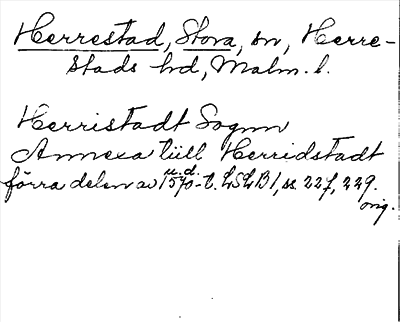 Herrestad, Stora, sn, Herre-
stads hd, Malm. l.
Herristadt Sognn
Annexa till Herridstadt
u.d.
förra delen av 1570-t. LSLB 1, ss. 227, 229.
orig.